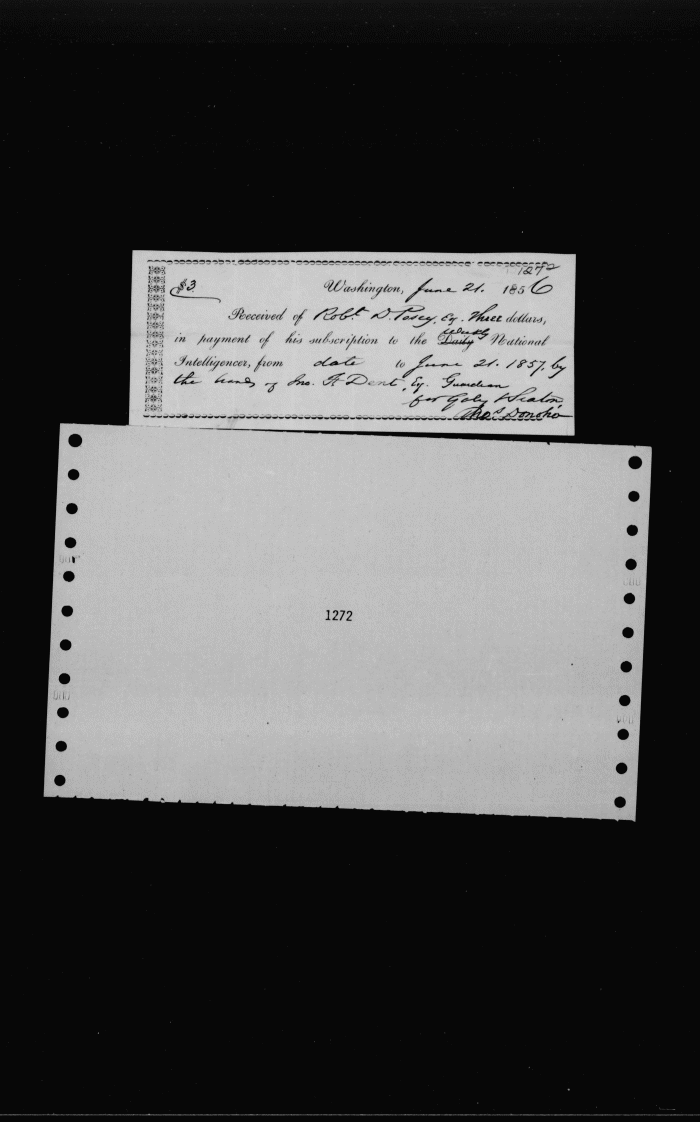 1272
$3. Washington, June 21. 1856
Received of Robt. D. Posey, Eq. Three dollars,
Weekly
in payment of his subscription to the Daily National
Intelligencer, from date to June 21. 1857, by
the hands of Jno. F. Dent, Eq. Guardian
for Gales & Seaton
Thos. Donoho
1272